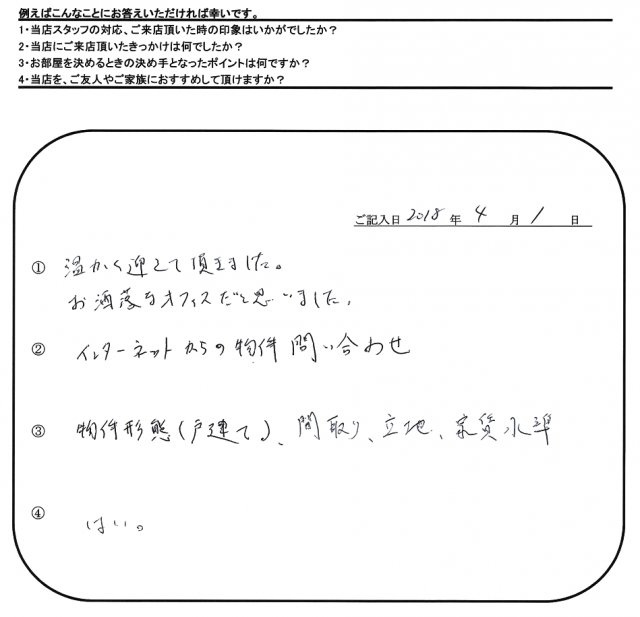 例えばこんなことにお答えいただければ幸いです。
1・当店スタッフの対応、ご来店頂いた時の印象はいかがでしたか？
2・当店にご来店頂いたきっかけは何でしたか？
3・お部屋を決めるときの決め手となったポイントは何ですか？
4・当店を、ご友人やご家族におすすめして頂けますか？
ご記入日 2018 年 4 月 1 日
① 温かく迎えて頂きました。
お洒落なオフィスだと思いました。
② インターネットからの物件問い合わせ
③ 物件形態(戸建て)、間取り、立地、家賃水準
④ はい。